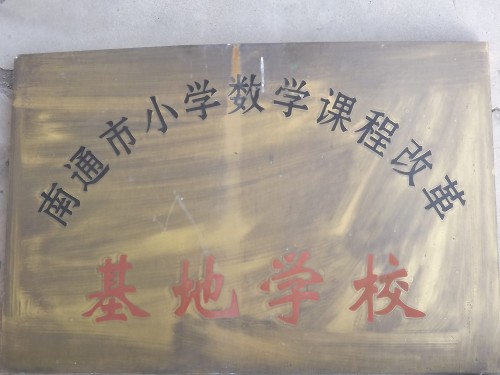 南通市小学数学课程改革
基地学校